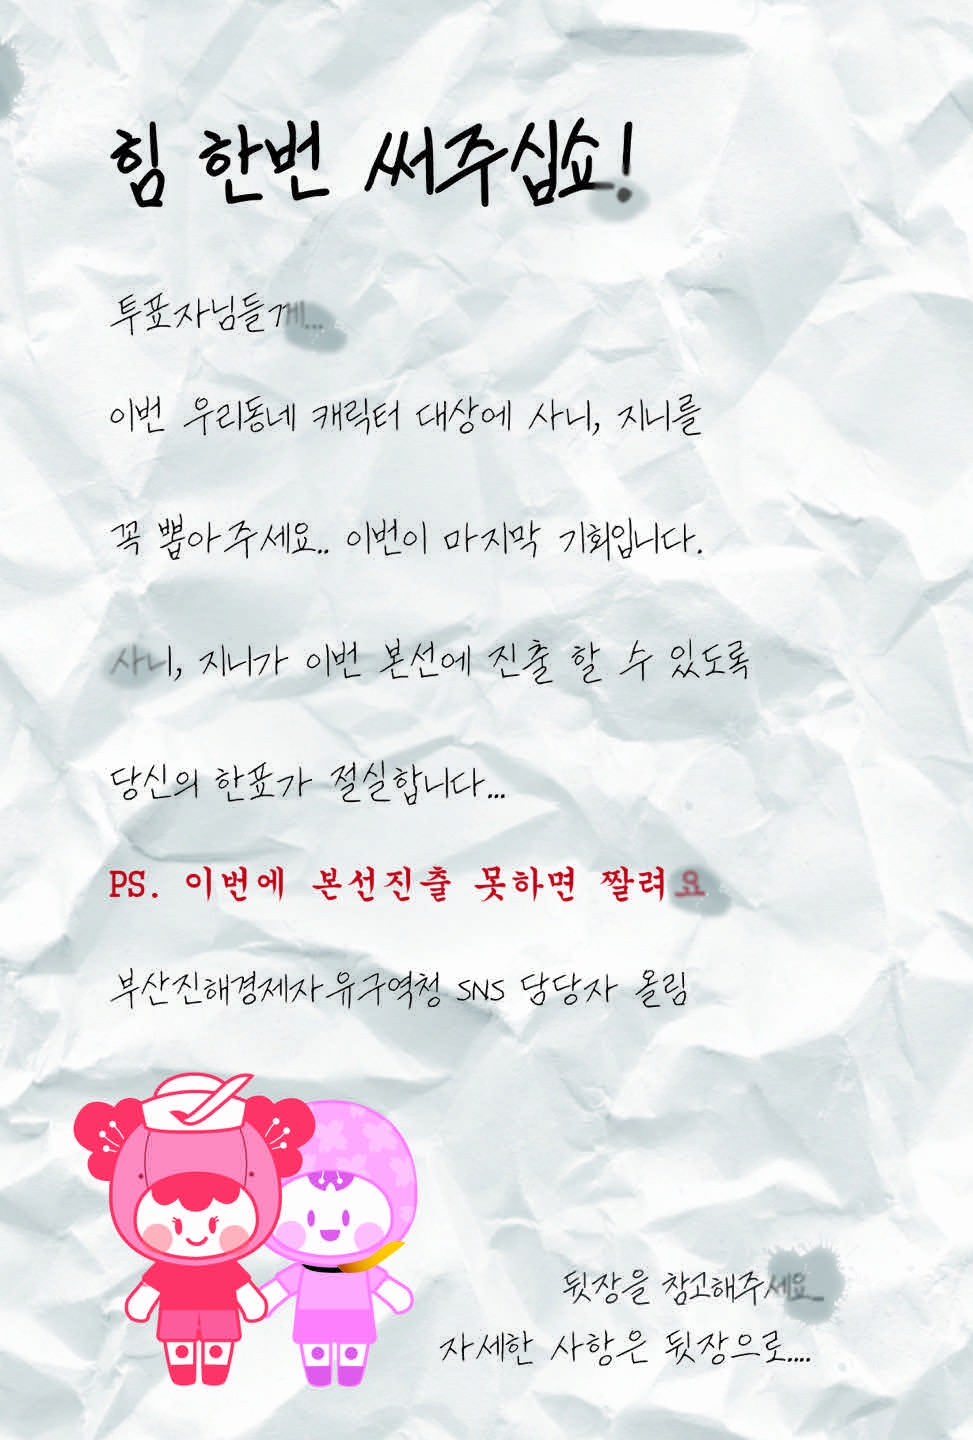 힘 한번 써주십쇼!
투표자님들께...
이번 우리동네 캐릭터 대상에 사니, 지니를
꼭 뽑아주세요.. 이번이 마지막 기회입니다.
사니, 지니가 이번 본선에 진출 할 수 있도록
당신의 한표가 절실합니다...
PS. 이번에 본선진출 못하면 짤려요
부산진해경제자유구역청 SNS 담당자 올림
뒷장을 참고해주세요_
자세한 사항은 뒷장으로....